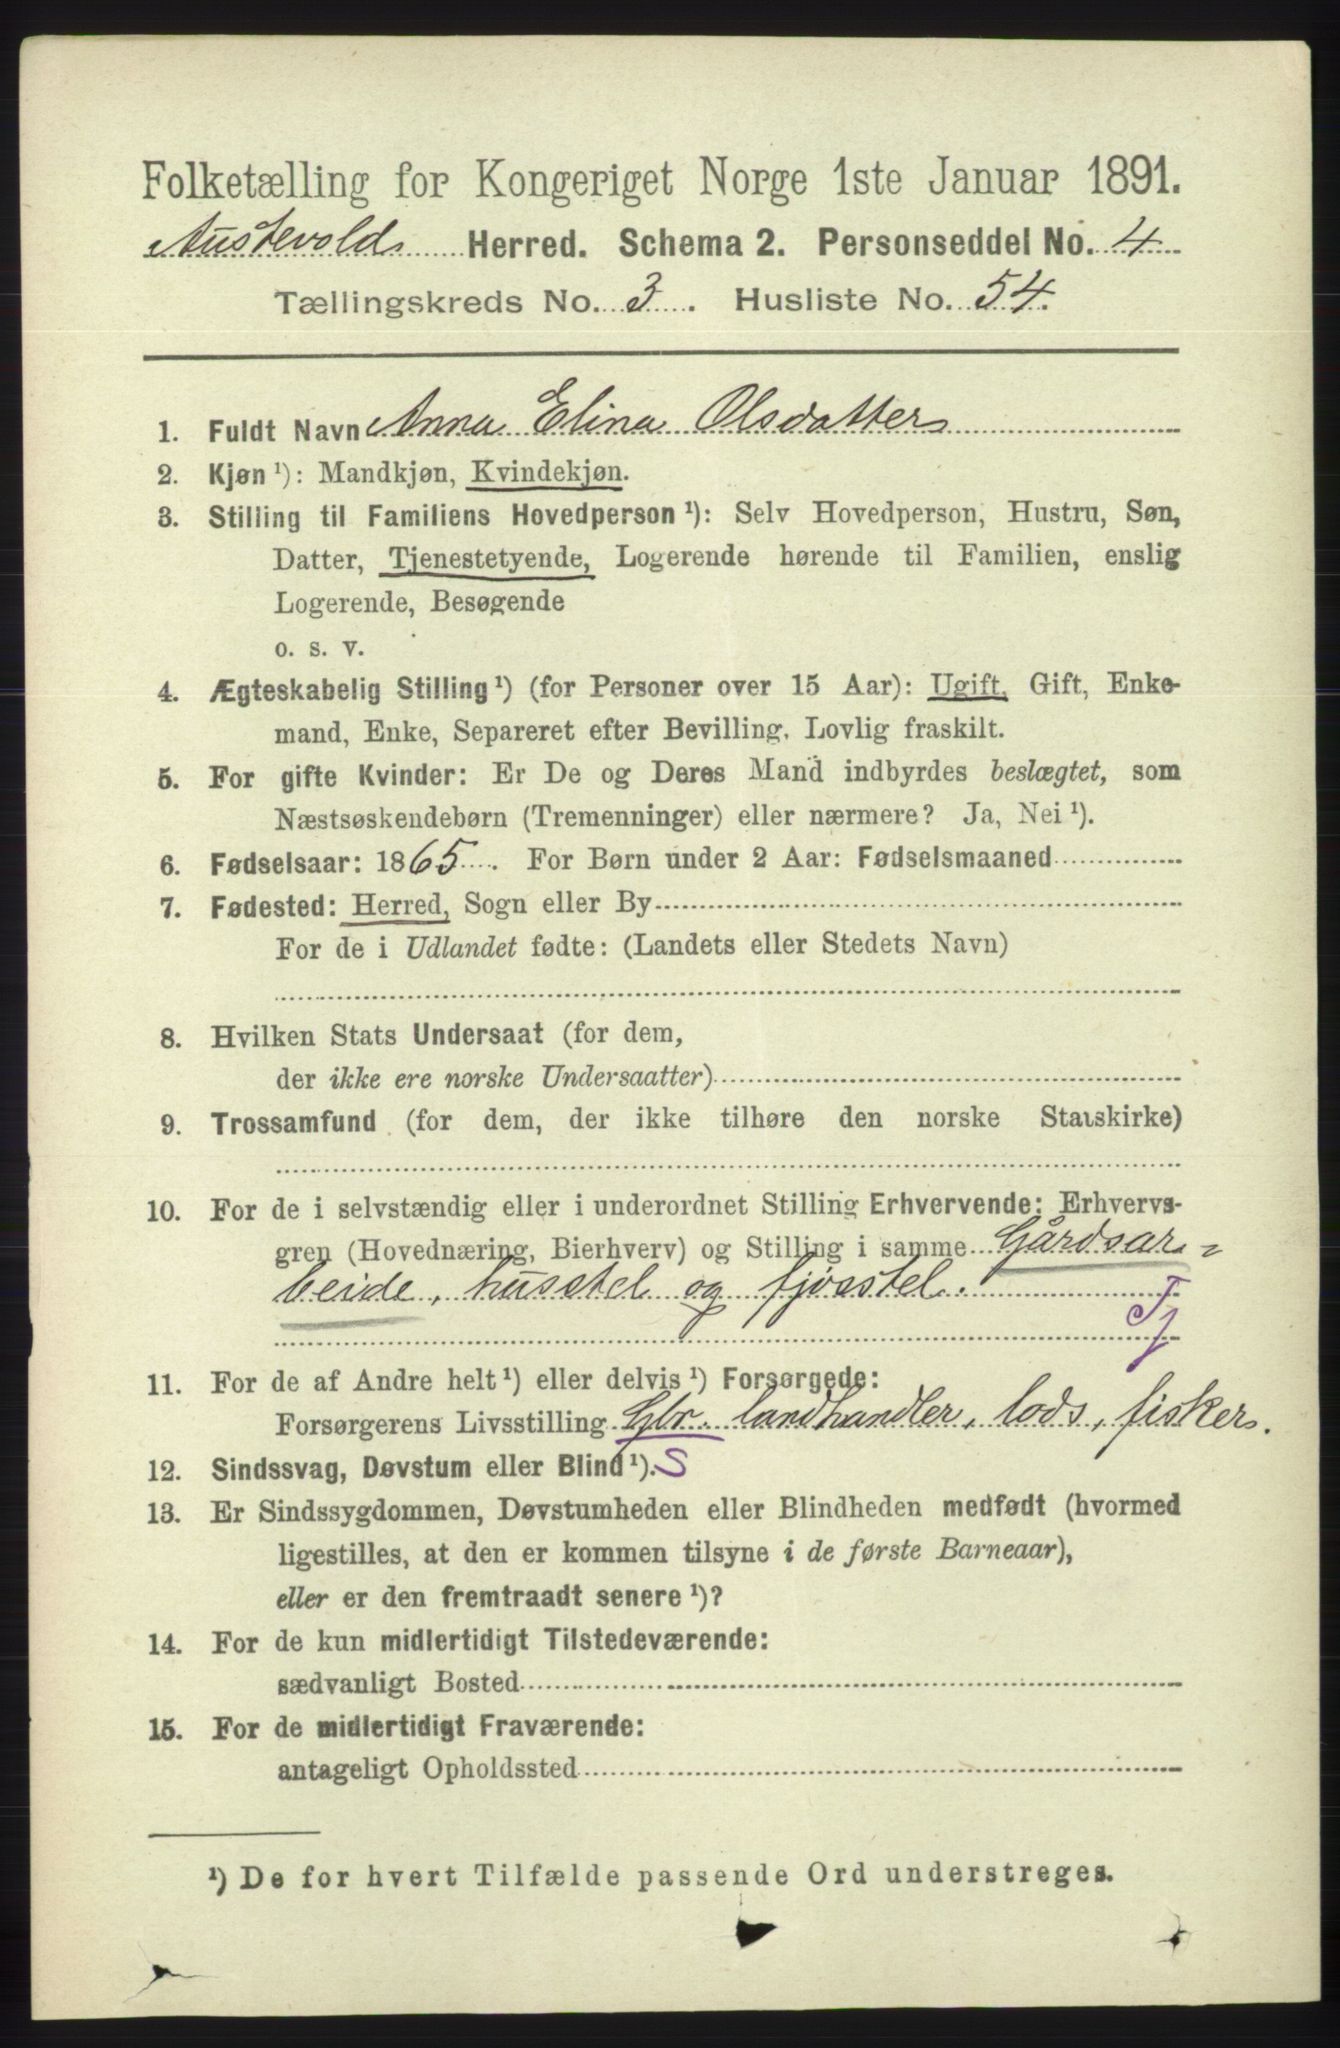 Folketælling for Kongeriget Norge 1ste Januar 1891.
Austevolds Herred. Schema 2. Personseddel No. 4
Tællingskreds No. 3. Husliste No. 54.
1. Fuldt Navn Anna Elina Olsdatter
2. Kjøn ¹): Mandkjøn, Kvindekjøn.
3. Stilling til Familiens Hovedperson ¹): Selv Hovedperson, Hustru, Søn,
Datter, Tjenestetyende, Logerende hørende til Familien, enslig
Logerende, Besøgende
o. s. v.
4. Ægteskabelig Stilling ¹) (for Personer over 15 Aar): Ugift, Gift, Enke-
mand, Enke, Separeret efter Bevilling. Lovlig fraskilt.
5. For gifte Kvinder: Er De og Deres Mand indbyrdes beslægtet, som
Næstsøskendebørn (Tremenninger) eller nærmere? Ja, Nei ¹).
6. Fødselsaar: 1865. For Børn under 2 Aar: Fødselsmaaned
7. Fødested: Herred, Sogn eller By
For de i Udlandet fødte: (Landets eller Stedets Navn)
8. Hvilken Stats Undersaat (for dem,
der ikke ere norske Undersaatter)
9. Trossamfund (for dem, der ikke tilhøre den norske Statskirke)
10. For de i selvstændig eller i underordnet Stilling Erhvervende: Erhvervs-
gren (Hovednæring, Bierhverv) og Stilling i samme Gårdsar-
beide, husstel og fjosstel.
Tj
11. For de af Andre helt ¹) eller delvis ¹) Forsørgede:
Forsørgerens Livsstilling Gbr. landhandler, lods, fisker.
12. Sindssvag, Døvstum eller Blind ¹). S
13. Er Sindssygdommen, Døvstumheden eller Blindheden medfødt (hvormed
ligestilles, at den er kommen tilsyne i de første Barneaar),
eller er den fremtraadt senere ¹)?
14. For de kun midlertidigt Tilstedeværende:
sædvanligt Bosted
15. For de midlertidigt Fraværende:
antageligt Opholdssted
¹) De for hvert Tilfælde passende Ord understreges.